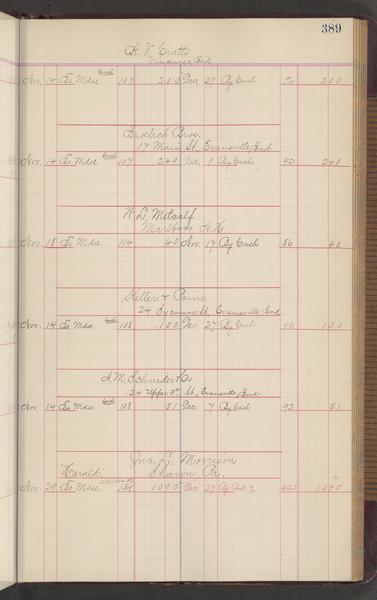 389
A. V. Cratts
Vincennes, Ind
Nov. 14 To Mdse 107 200 Dec. 27 By Cash 96 200
Erdlich Bros.
17 Main St., Evansville, Ind.
Nov. 14 To Mdse. 107 240 Dec. 9 By Cash 92 240
W. L. Metcalf
Marlboro N.H
Nov. 18 To Mdse. 114 40 Nov. 19 By Cash 86 40
Keller & Paine
24 Sycamore St. Evansville, Ind
Nov. 14 To Mdse. 108 150 Dec. 27 By Cash 96 150
A. M. Schrader & Co
124 Upper 3rd St., Evansville, Ind
Nov. 14 To Mdse 108 51 Dec. 7 By Cash 92 51
Jno. G. Morrison
"Herald" Sharon Pa.
Nov. 29 To Mdse. 134 1095 Dec. 27 By 422 1095